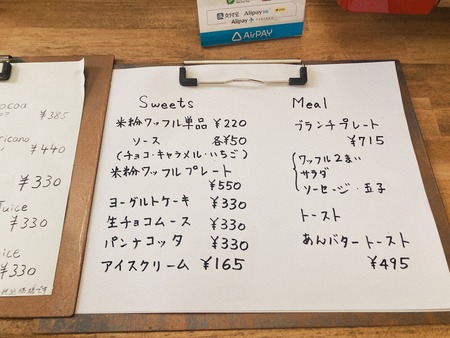 支付宝 Alipay
Alipay+
AirPAY
ocoa
¥385
ricano
¥440
¥330
Juice
¥330
ice
¥330
税込価格です
Sweets
米粉ワッフル単品 ¥220
ソース 各¥50
(チョコ・キャラメル・いちご)
米粉ワッフルプレート
¥550
ヨーグルトケーキ ¥330
生チョコムース ¥330
パンナコッタ ¥330
アイスクリーム ¥165
Meal
ブランチプレート
¥715
ワッフル2まい
サラダ
ソーセージ・玉子
トースト
あんバタートースト
¥495